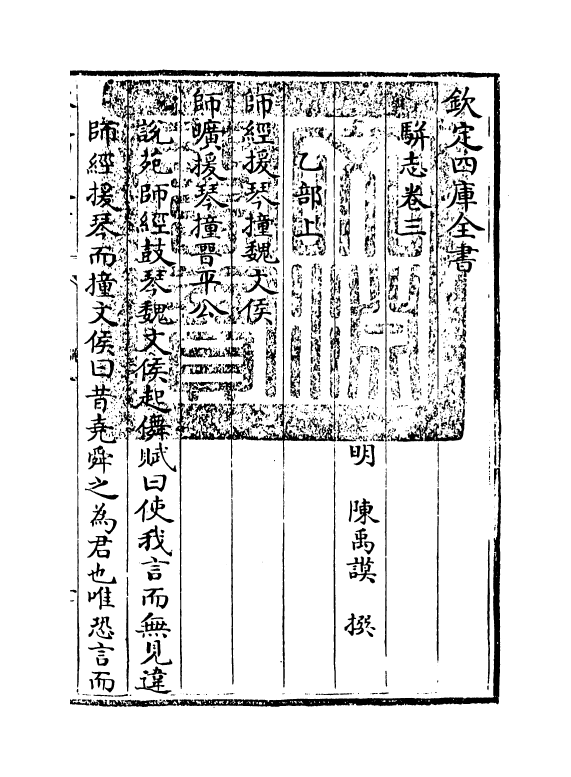 欽定四庫全書
駢志卷三
明 陳禹謨 撰
乙部上
師經援琴撞魏文侯
師曠援琴撞晉平公
說苑師經鼓琴魏文侯起儛賦曰使我言而無見違
師經援琴而撞文侯曰昔堯舜之為君也唯恐言而